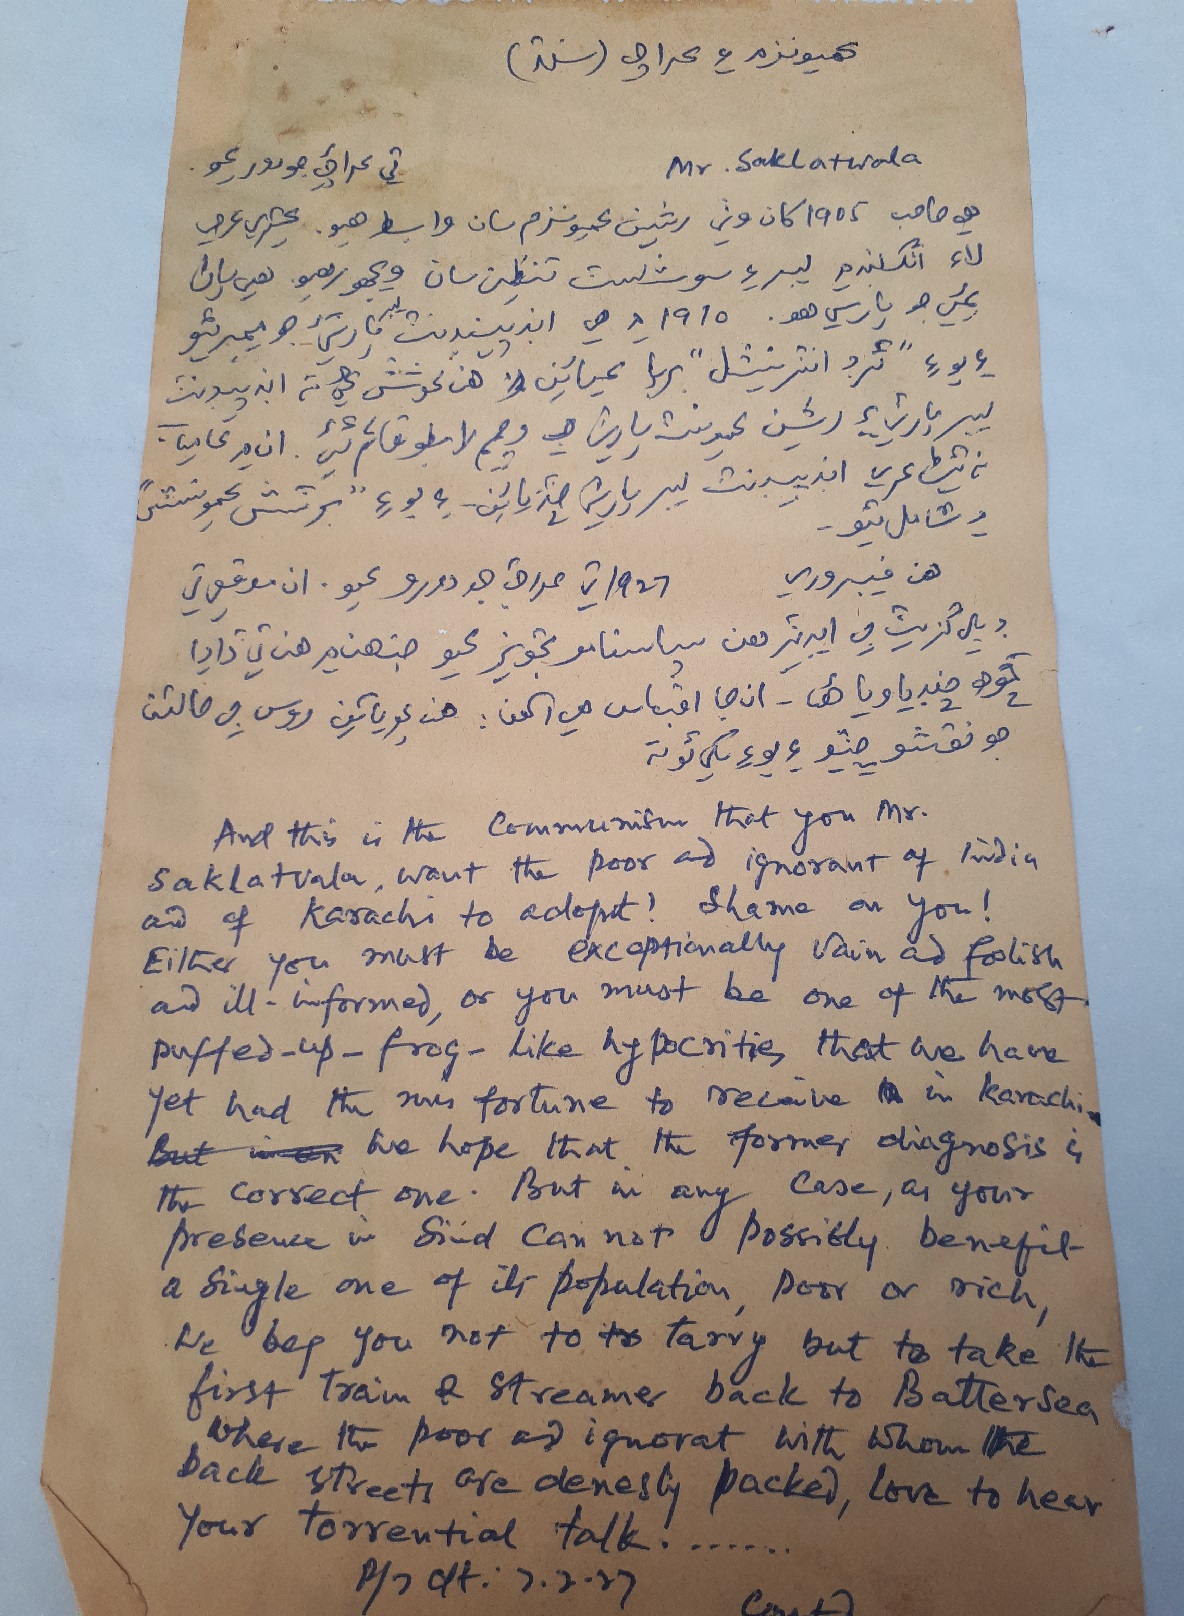 ڪميونزم ۽ ڪراچي (سنڌ)
Mr. Saklatwala تي ڪراچيءَ جو دورو ڪيو.
هي صاحب 1905 کان وٺي رشين ڪميونزم سان وابسط هيو.
لاءِ انگلينڊ ۾ ليبر ۽ سوشلسٽ تنظيمن سان ويجهو رهيو. هي
جو پارسي هو. 1910 ۾ هي انڊيپينڊنٽ ليبر پارٽيءَ جو ميمبر ٿيو
۽ پوءِ "ٿرڊ انٽرنيشنل" هن ڪوشش ڪئي تہ انڊيپينڊنٽ
ليبر پارٽيءَ ۽ رشين ڪميونسٽ پارٽي جي وچ ۾ لاڳاپو قائم ٿئي. ان ۾ ڪامياب
نہ ٿيڻ ڪري انڊيپينڊنٽ ليبر پارٽي ڇڏيائين - ۽ پوءِ "برٽش ڪميونسٽس"
۾ شامل ٿيو -
هن فيبروري 1927 تي ڪراچي جو دورو ڪيو. ان موقعي تي
ڊيلي گزيٽ جي ايڊيٽر هن سپاسنامو تجويز ڪيو جنهن ۾ هن تي ڏاڍا
ويا هئا - ان جا اقتباس هي آهن: هن روس جي حالتن
جو نقشو چٽيو ۽ پوءِ لکيائو تہ
And this is the Communism that you Mr.
Saklatvala, want the poor ad ignorant of India
and of Karachi to adopt! Shame on you!
Either you must be exceptionally vain ad foolish
and ill-informed, or you must be one of the most
puffed-up-frog-like hypocrities that we have
yet had the misfortune to receive in Karachi.
But in an We hope that the former diagnosis is
the correct one. But in any case, as your
presence in Sind cannot possibly benefit
a single one of its population, poor or rich,
We beg you not to to tarry but to take the
first train & streamer back to Battersea
where the poor ad ignorat with whom the
back streets are denesly packed, love to hear
your torrential talk.......
P/7 dt: 7.2.27
Contd